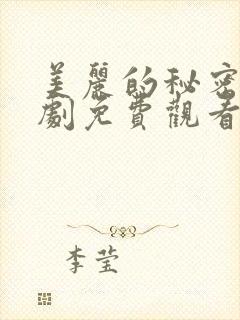 美麗的秘密
劇免費觀看
李莹